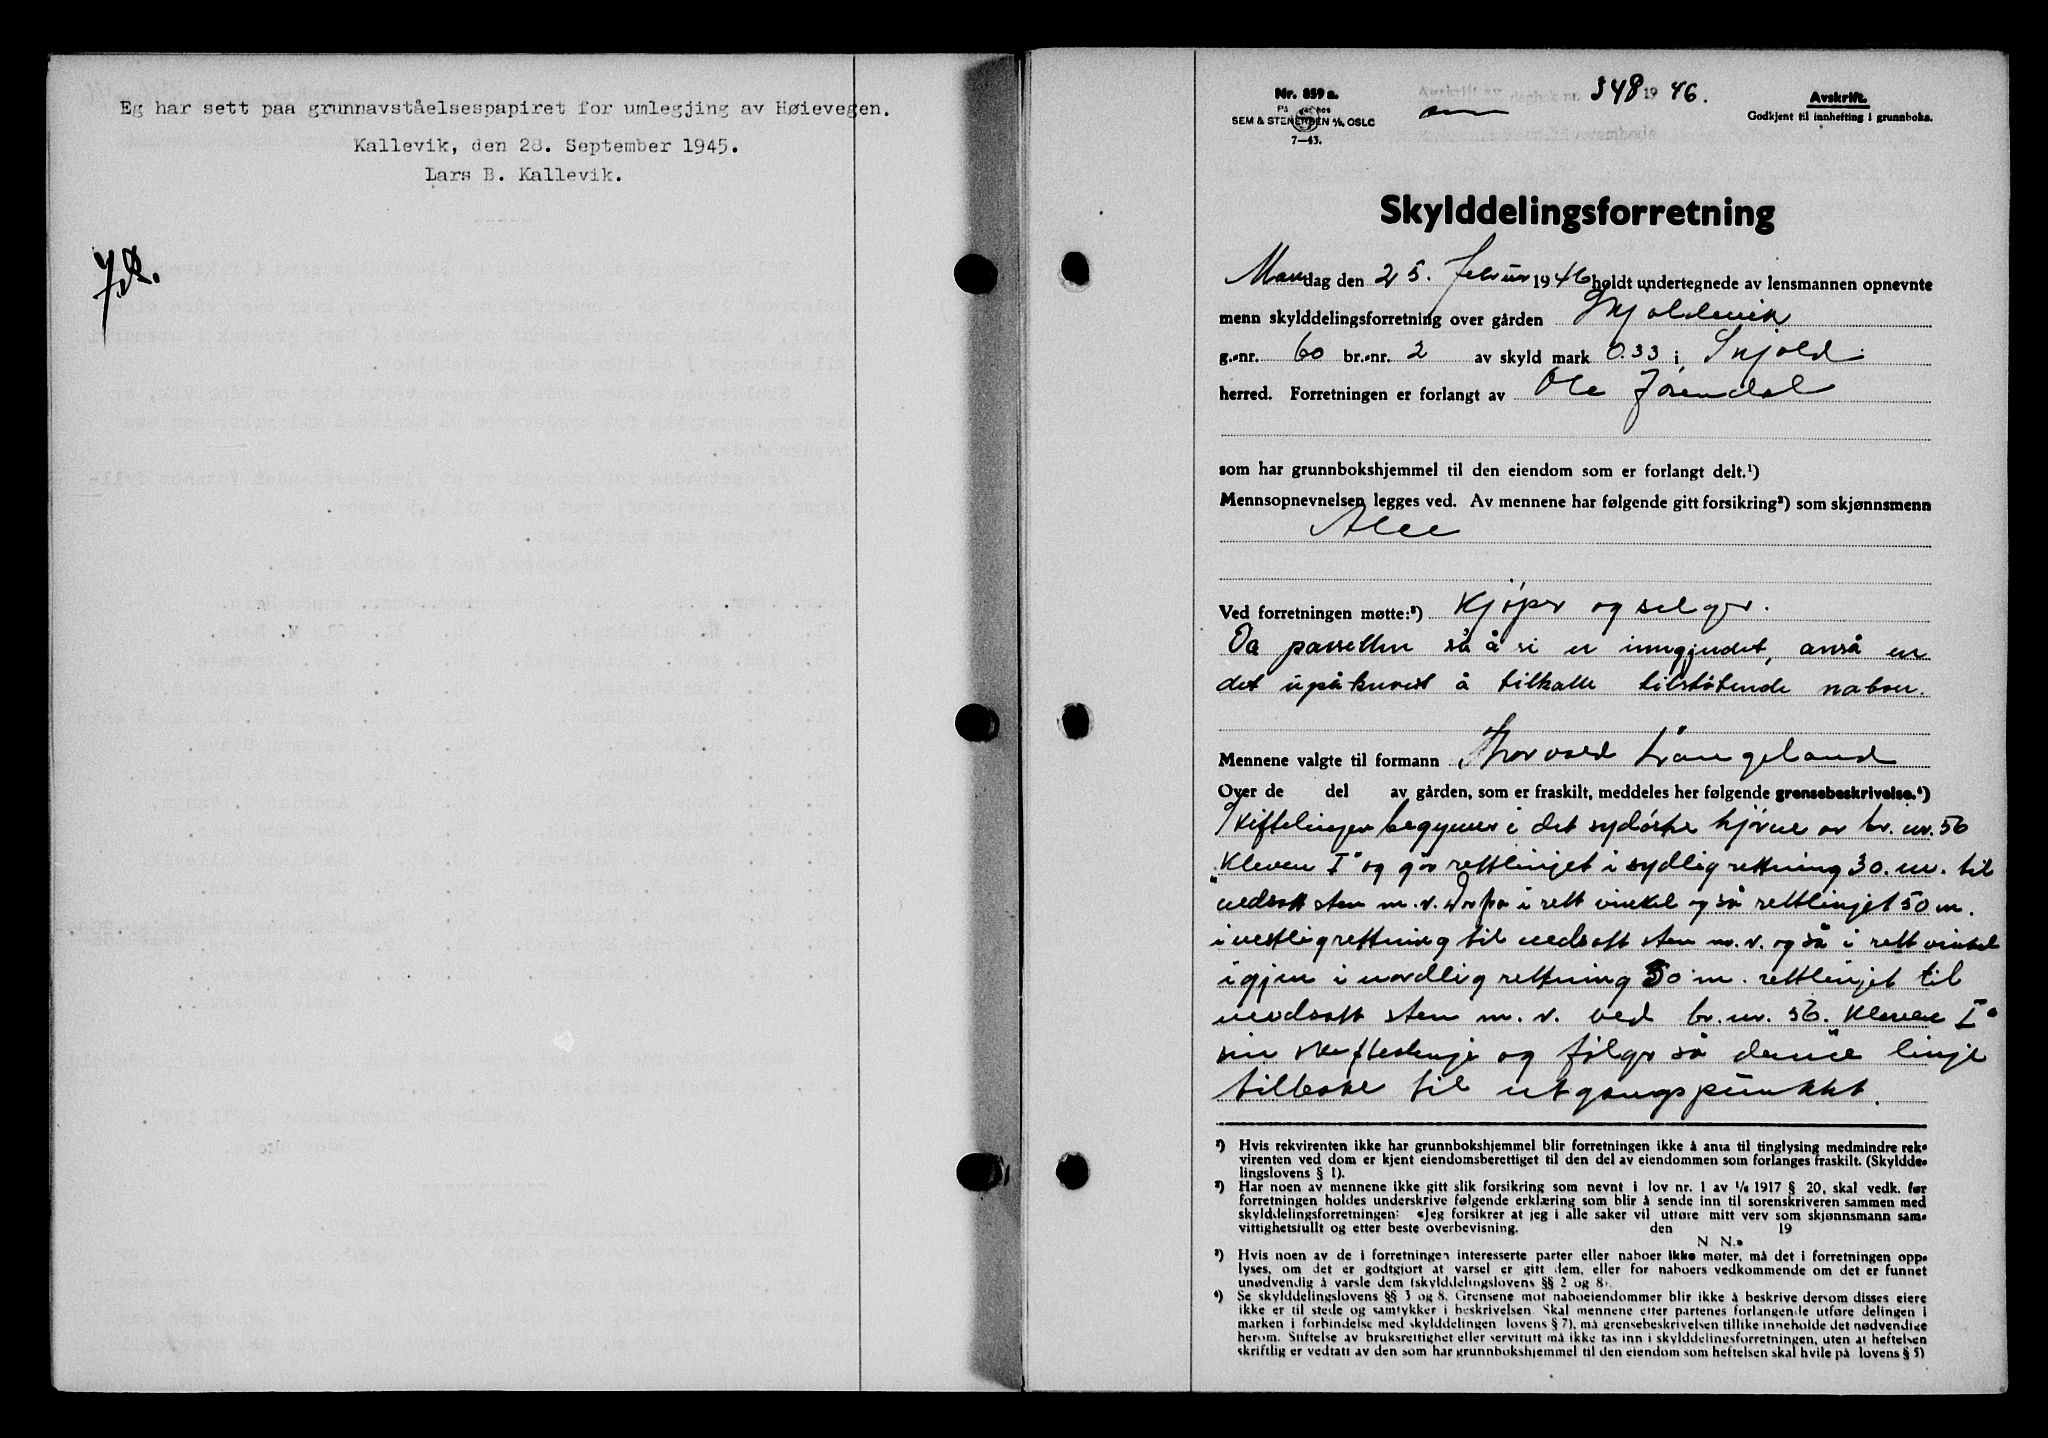 Eg har sett paa grunnavståelsespapiret for umlegjing av Høievegen.
Kallevik, den 28. September 1945.
Lars B. Kallevik.
Nr. 859 a.
SEM & STENERSEN A/S, OSLO
7—43.
dagbok nr. 348 19 46.
Avskrift.
Godkjent til innhefting i grunnboka.
Skylddelingsforretning
Mandag den 25. februar 1946 holdt undertegnede av lensmannen opnevnte
menn skylddelingsforretning over gården Skjoldevik
g.-nr. 60 br.-nr. 2 av skyld mark 0.33 i Skjold
herred. Forretningen er forlangt av Ole
som har grunnbokshjemmel til den eiendom som er forlangt delt.¹)
Mennsopnevnelsen legges ved. Av mennene har følgende gitt forsikring²) som skjønnsmenn
Alle
Ved forretningen møtte:³) Kjøper og selger.
Da parsellen så å si er inngjerdet, anså en
det upåkrevet å tilkalle tilstøtende naboer.
Mennene valgte til formann Thorvald Langeland
Over de del av gården, som er fraskilt, meddeles her følgende grensebeskrivelse.⁴)
Skiftelinjen begynner i det sydøstre hjørne av br. nr. 56
"Kleven I" og går rettlinjet i sydlig rettning 30. m. til
nedsatt sten m. v. Derfra i rett vinkel og så rettlinjet 50 m.
i vestlig rettning til nedsatt sten m. v. og så i rett vinkel
igjen i nordlig rettning 30 m. rettlinjet til
nedsatt sten m. v. ved br. nr. 56. "Kleven I"
sin skifteslinje og følger så denne linje
tilbake til utgangspunktet.
¹) Hvis rekvirenten ikke har grunnbokshjemmel blir forretningen ikke å anta til tinglysing medmindre rek-
virenten ved dom er kjent eiendomsberettiget til den del av eiendommen som forlanges fraskilt. (Skyldde-
lingslovens § 1).
²) Har noen av mennene ikke gitt slik forsikring som nevnt i lov nr. 1 av 1/6 1917 § 20, skal vedk. før
forretningen holdes underskrive følgende erklæring som blir å sende inn til sorenskriveren sammen med
skylddelingsforretningen: «Jeg forsikrer at jeg i alle saker vil utføre mitt verv som skjønnsmann sam-
vittighetsfullt og etter beste overbevisning. den 19
N. N.»
³) Hvis noen av de i forretningen interesserte parter eller naboer ikke møter, må det i forretningen opp-
lyses, om det er godtgjort at varsel er gitt dem, eller for naboers vedkommende om det er funnet
unødvendig å varsle dem (skylddelingslovens §§ 2 og 8).
⁴) Se skylddelingslovens §§ 3 og 8. Grensene mot naboeiendommer blir ikke å beskrive dersom disses eiere
ikke er til stede og samtykker i beskrivelsen. Skal mennene etter partenes forlangende utføre delingen i
marken i forbindelse med skylddelingen (lovens § 7), må grensebeskrivelsen tillike inneholde det nødvendige
herom. Stiftelse av bruksrettighet eller servitutt må ikke tas inn i skylddelingsforretningen, uten at heftelsen
skriftlig er vedtatt av den som har grunnbokshjemmel til den eiendom som heftelsen skal hvile på (lovens § 5)